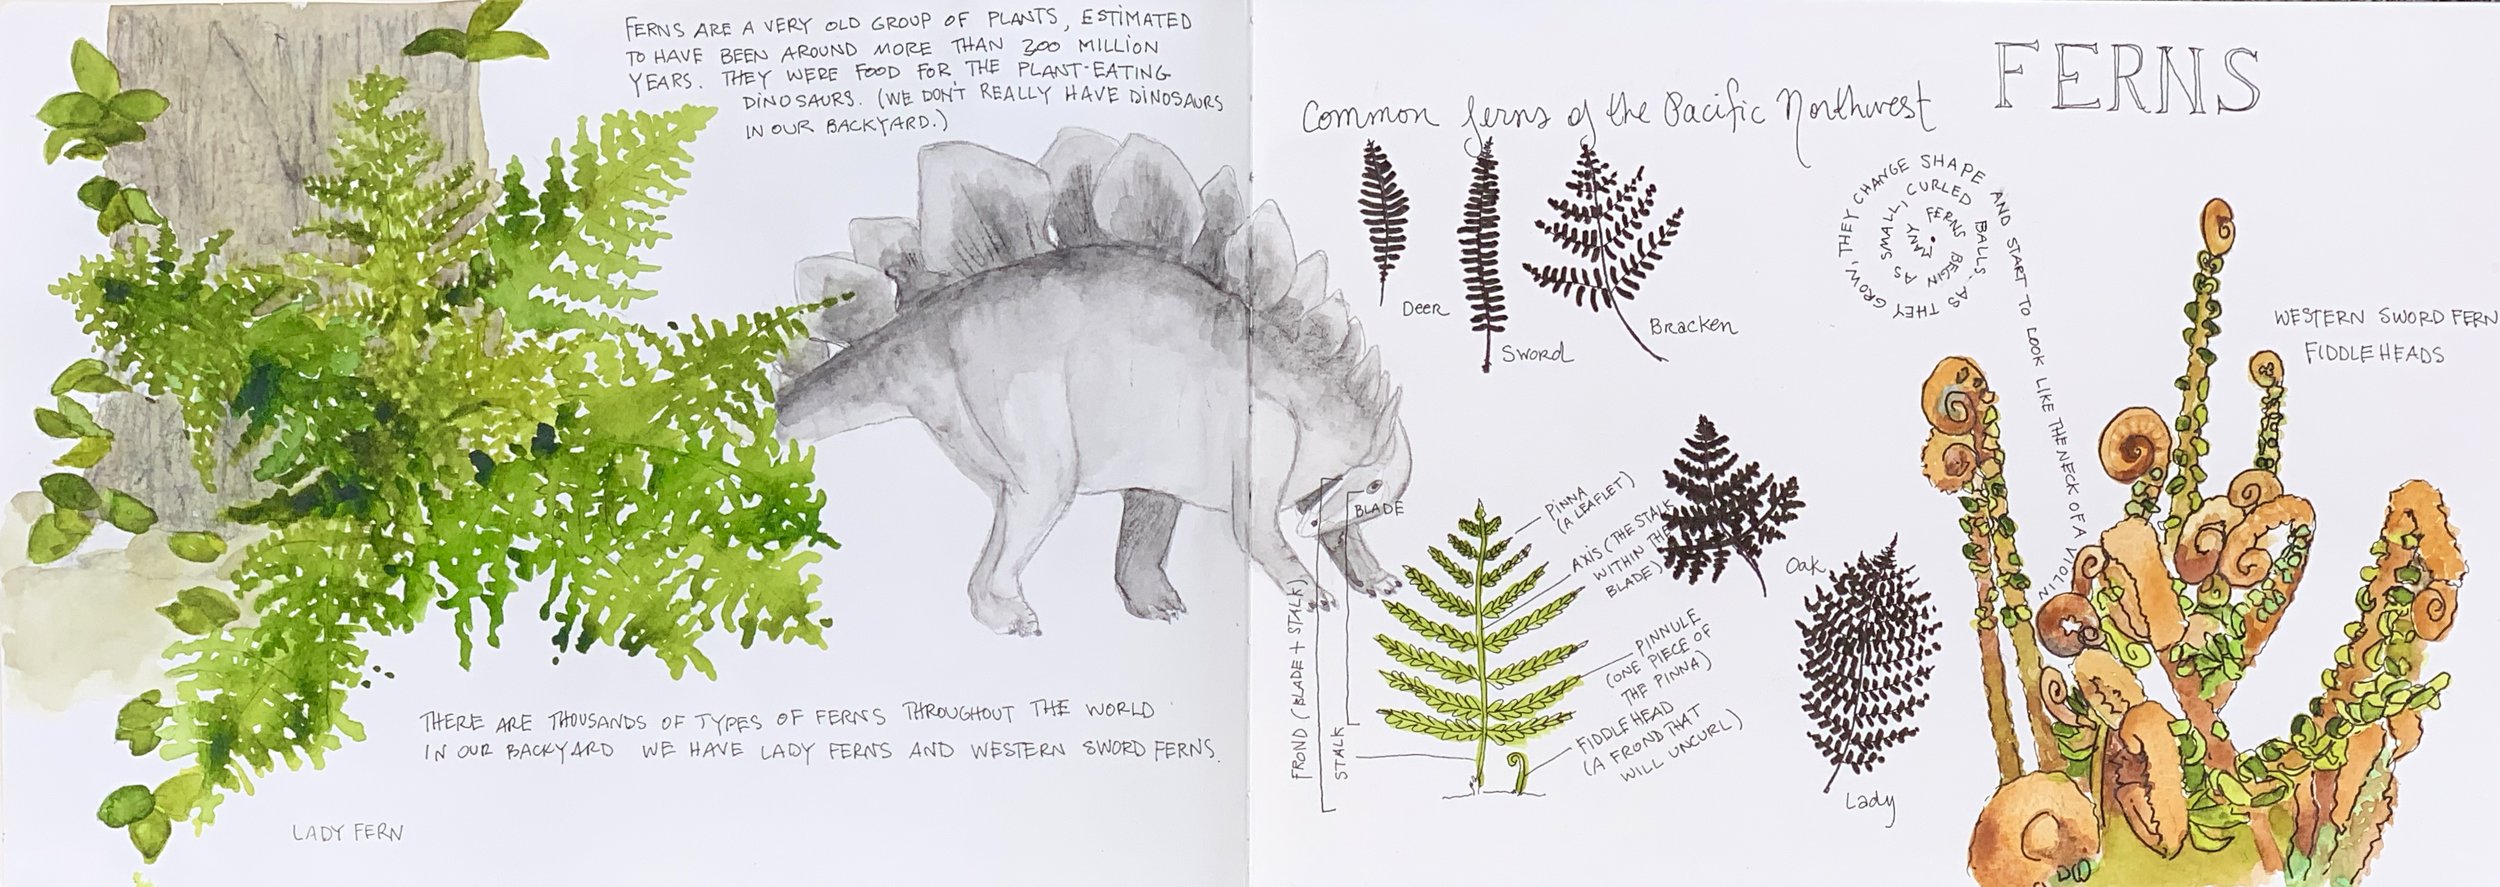 FERNS ARE A VERY OLD GROUP OF PLANTS, ESTIMATED
TO HAVE BEEN AROUND MORE THAN 300 MILLION
YEARS. THEY WERE FOOD FOR THE PLANT-EATING
DINOSAURS. (WE DON'T REALLY HAVE DINOSAURS
IN OUR BACKYARD.)
THERE ARE THOUSANDS OF TYPES OF FERNS THROUGHOUT THE WORLD
IN OUR BACKYARD WE HAVE LADY FERNS AND WESTERN SWORD FERNS.
LADY FERN
FERNS
Common ferns of the Pacific Northwest
Deer
Sword
Bracken
Oak
Lady
BLADE
FROND (BLADE + STALK)
STALK
PINNA
(A LEAFLET)
AXIS (THE STALK
WITHIN THE
BLADE)
PINNULE
(ONE PIECE OF
THE PINNA)
FIDDLEHEAD
(A FROND THAT
WILL UNCURL)
MANY FERNS BEGIN AS SMALL, CURLED BALLS. AS THEY GROW, THEY CHANGE SHAPE AND START TO LOOK LIKE THE NECK OF A VIOLIN
WESTERN SWORD FERN
FIDDLEHEADS